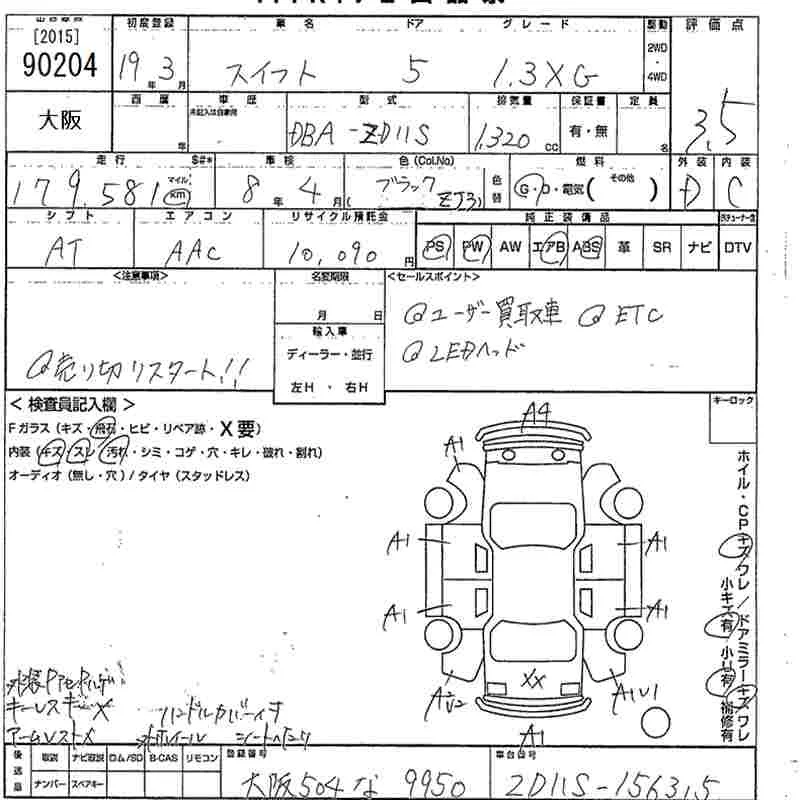 [2015]
90204
初度登録 車名 ドア グレード 駆動 評価点
19年 3月 スイフト 5 1.3XG 2WD・4WD 3.5
大阪
西暦 車歴 型式 排気量 保証書 定員
年 未記入は自家用 DBA-ZD11S 1,320 CC 有・無 名
走行 S#* 車検 色 (Col.No) 燃料 外装 内装
179,581 マイル km 8年 4月 (ブラック ZJ3) 色替 G・D・電気( その他 ) D C
シフト エアコン リサイクル預託金 純正装備品
AT AAC 10,090円 PS PW AW エアB ABS 革 SR ナビ DTV
<注意事項> 名変期限 <セールスポイント>
月 日
ユーザー買取車 ETC
LEDヘッド
輸入車
ディーラー・並行
左H ・ 右H
売り切りスタート!!
< 検査員記入欄 > キーロック
Fガラス (キズ・飛石・ヒビ・リペア跡・X要)
内装 (キズ・スレ・汚れ・シミ・コゲ・穴・キレ・破れ・割れ)
オーディオ (無し・穴) / タイヤ (スタッドレス)
A4
A1
A1 A1
A1 A1
XX
A1
ホイル・CPキズワレ/ドアミラーキズワレ
小キズ有 小凹有 補修有
キーレスキー×
アームレスト× ハンドルカバーイキ
後送品 取説 ナビ取説 ロム/SD B-CAS リモコン 登録番号 車台番号
ナンバー スペアキー 大阪504 な 9950 ZD11S-156315